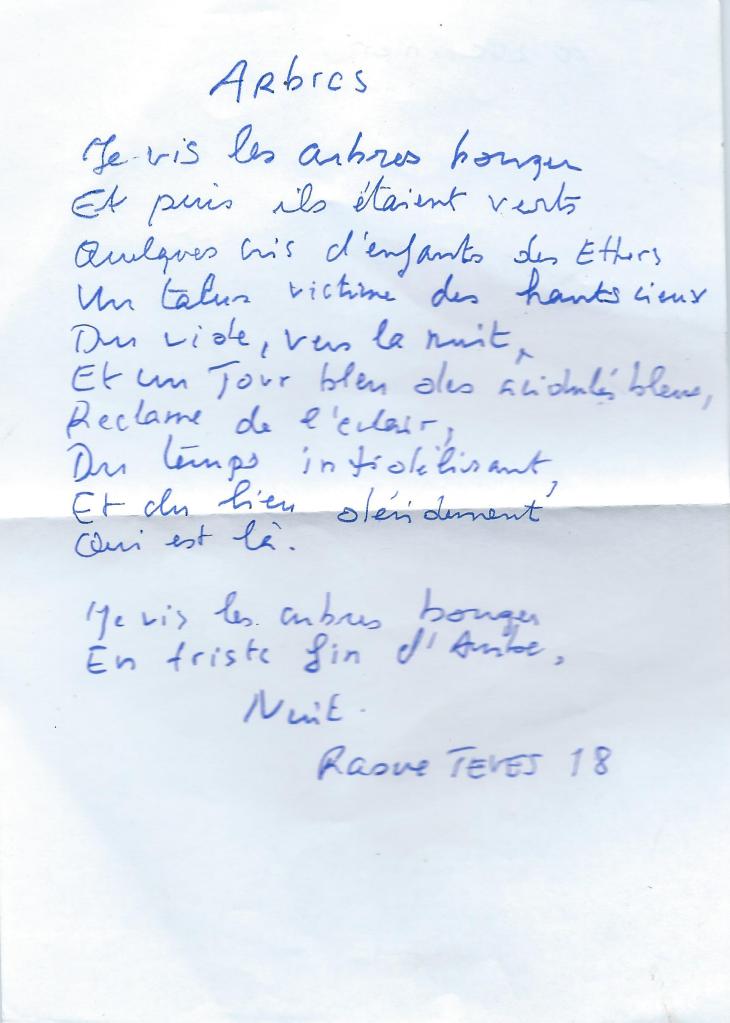 Arbres
Je vis les arbres bouger
Et puis ils étaient verts
Quelques cris d'enfants des Ethers
Un talus victime des hauts lieux
Du vide, vers la nuit,
Et un Jour bleu des acidulés bleus,
Reclame de l'éclair,
Du temps infidélisant,
Et du lieu décidement
Qui est là.
Je vis les arbres bouger
En triste fin d'Aube,
Nuit.
TEVES 18